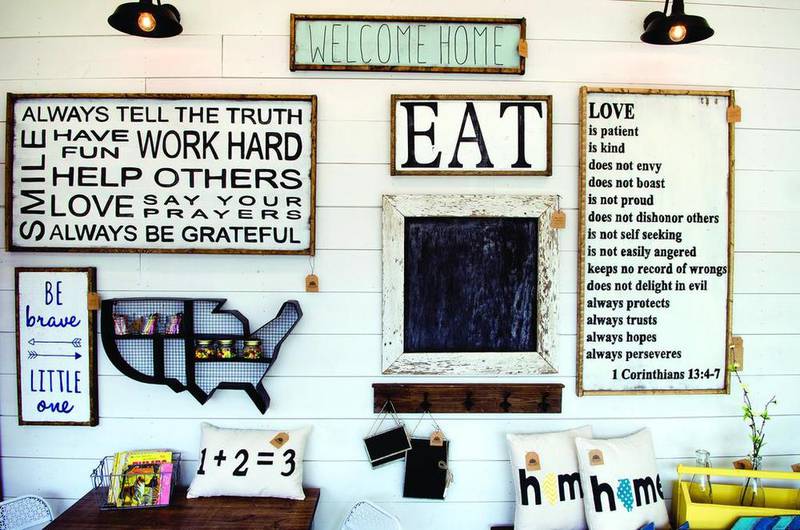 WELCOME HOME
ALWAYS TELL THE TRUTH
SMILE
HAVE FUN
WORK HARD
HELP OTHERS
LOVE
SAY YOUR PRAYERS
ALWAYS BE GRATEFUL
EAT
LOVE
is patient
is kind
does not envy
does not boast
is not proud
does not dishonor others
is not self seeking
is not easily angered
keeps no record of wrongs
does not delight in evil
always protects
always trusts
always hopes
always perseveres
1 Corinthians 13:4-7
BE
brave
LITTLE
one
1+2=3
hom
home